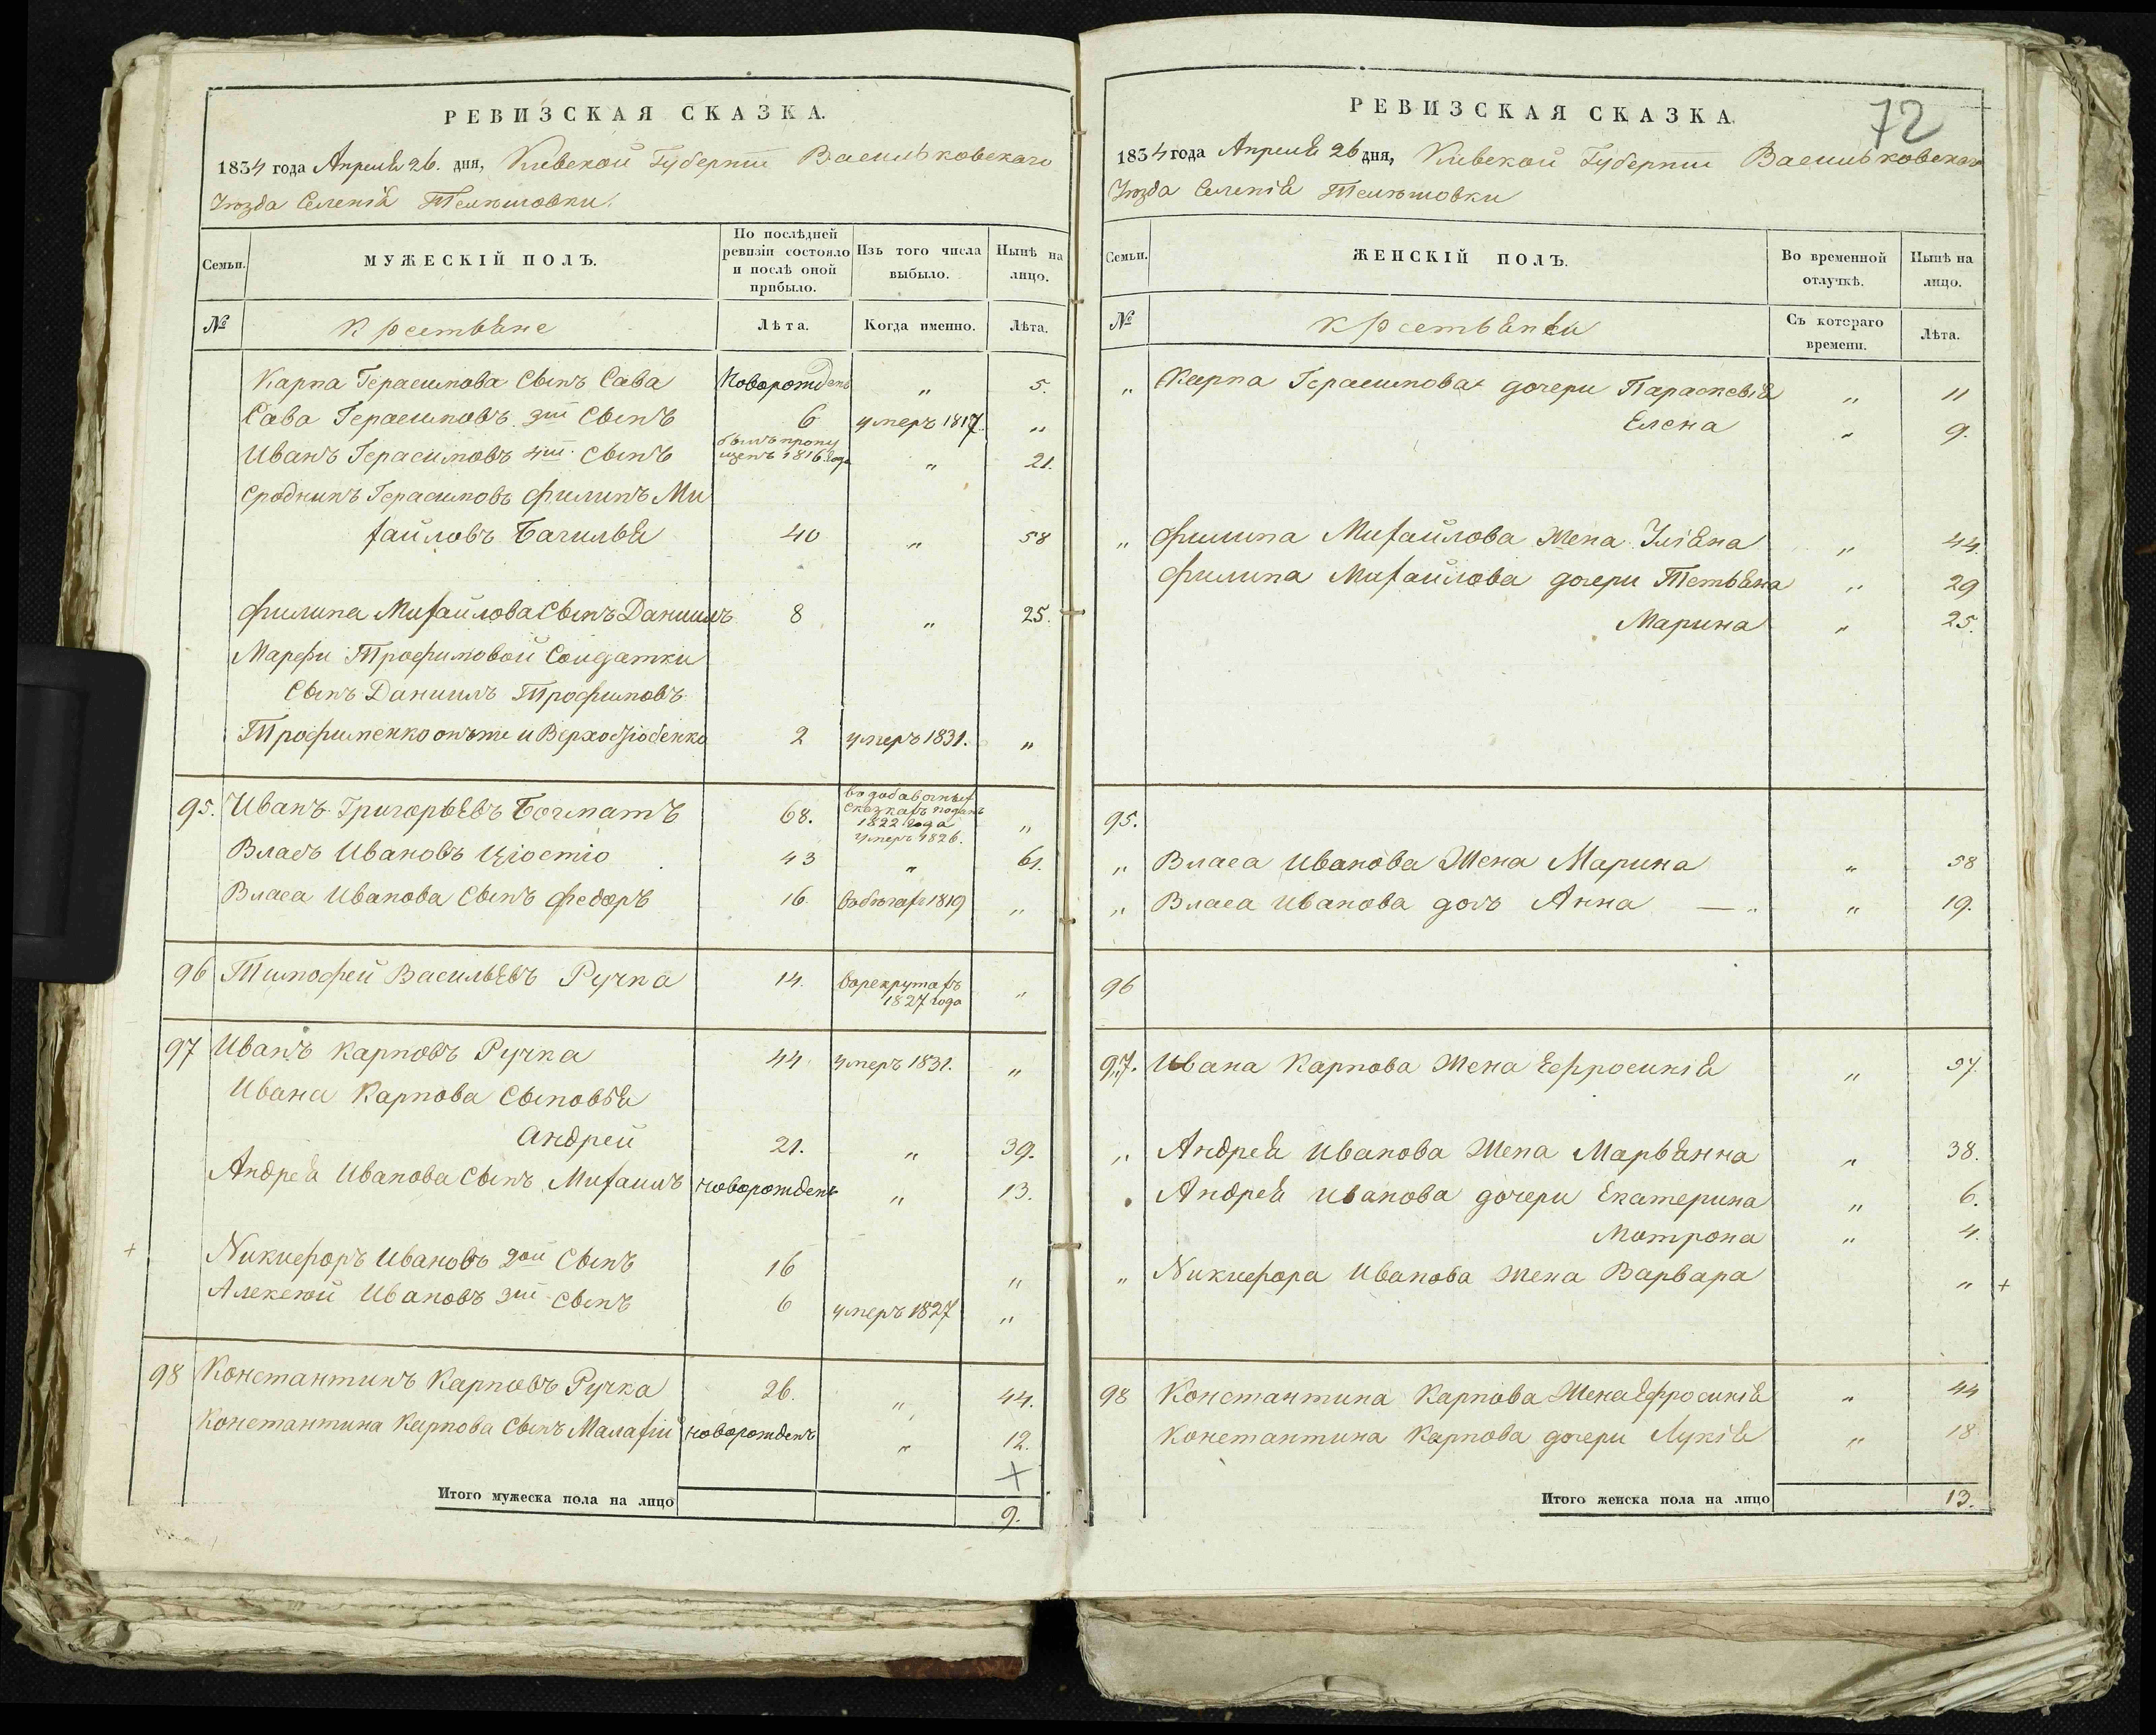 РЕВИЗСКАЯ СКАЗКА.
1834 года Апреля 26. дня, Киевской Губернии Васильковскаго
Уезда Селенія Телешовки.
Семьи. МУЖЕСКІЙ ПОЛЪ. По послѣдней ревизіи состояло и послѣ оной прибыло. Изъ того числа выбыло. Нынѣ на лицо.
№ Крестьяне Лѣта. Когда именно. Лѣта.
Карпа Герасимова Сынъ Сава Новорожденъ „ 5.
Сава Герасимовъ 3й Сынъ 6 умеръ 1817. „
Иванъ Герасимовъ 4й Сынъ былъ пропущенъ 1816. года „ 21.
Сродникъ Герасимовъ Филипъ Ми
хайловъ 40 „ 58
Филипа Михайлова Сынъ Даниилъ 8 „ 25.
Марфи Трофимовой Солдатки
Сынъ Даниилъ Трофимовъ
Трофименко онъже и 2 умеръ 1831. „
95. Иванъ Григорьевъ 68. 1822 года умеръ 1826. „
Власъ Ивановъ 43 „ 61.
Власа Иванова Сынъ Федоръ 16 въ бегахъ 1819 „
96 Тимофей Васильевъ Ручка 14. в рекрутахъ 1827 года „
97 Иванъ Карповъ Ручка 44 умеръ 1831. „
Ивана Карпова Сыновья
Андрей 21. „ 39.
Андрея Иванова Сынъ Михаилъ новорожденъ „ 13.
+ Никифоръ Ивановъ 2ой Сынъ 16 „
Алексей Ивановъ 3й Сынъ 6 умеръ 1827 „
98 Константинъ Карповъ Ручка 26. „ 44.
Константина Карпова Сынъ Малахій новорожденъ „ 12.
Итого мужеска пола на лицо 9.
72
РЕВИЗСКАЯ СКАЗКА.
1834 года Апреля 26 дня, Киевской Губернии Васильковскаго
Уезда Селенія Телешовки
Семьи. ЖЕНСКІЙ ПОЛЪ. Во временной отлучкѣ. Нынѣ на лицо.
№ Крестьянки Съ котораго времени. Лѣта.
„ Карпа Герасимова дочери Параскевія „ 11
Елена „ 9.
„ Филипа Михайлова Жена Уліяна „ 44.
Филипа Михайлова дочери Тетьяна „ 29
Марина „ 25.
95.
„ Власа Иванова Жена Марина „ 58
„ Власа Иванова дочь Анна „ 19.
96
97. Ивана Карпова Жена Ефросинія „ 57.
„ Андрея Иванова Жена Марьянна „ 38.
Андрея Иванова дочери Екатерина „ 6.
Мотрона „ 4.
„ Никифора Иванова Жена Варвара „ +
98 Константина Карпова Жена Ефросинія „ 44
Константина Карпова дочери Лукія „ 18
Итого женска пола на лицо 13.